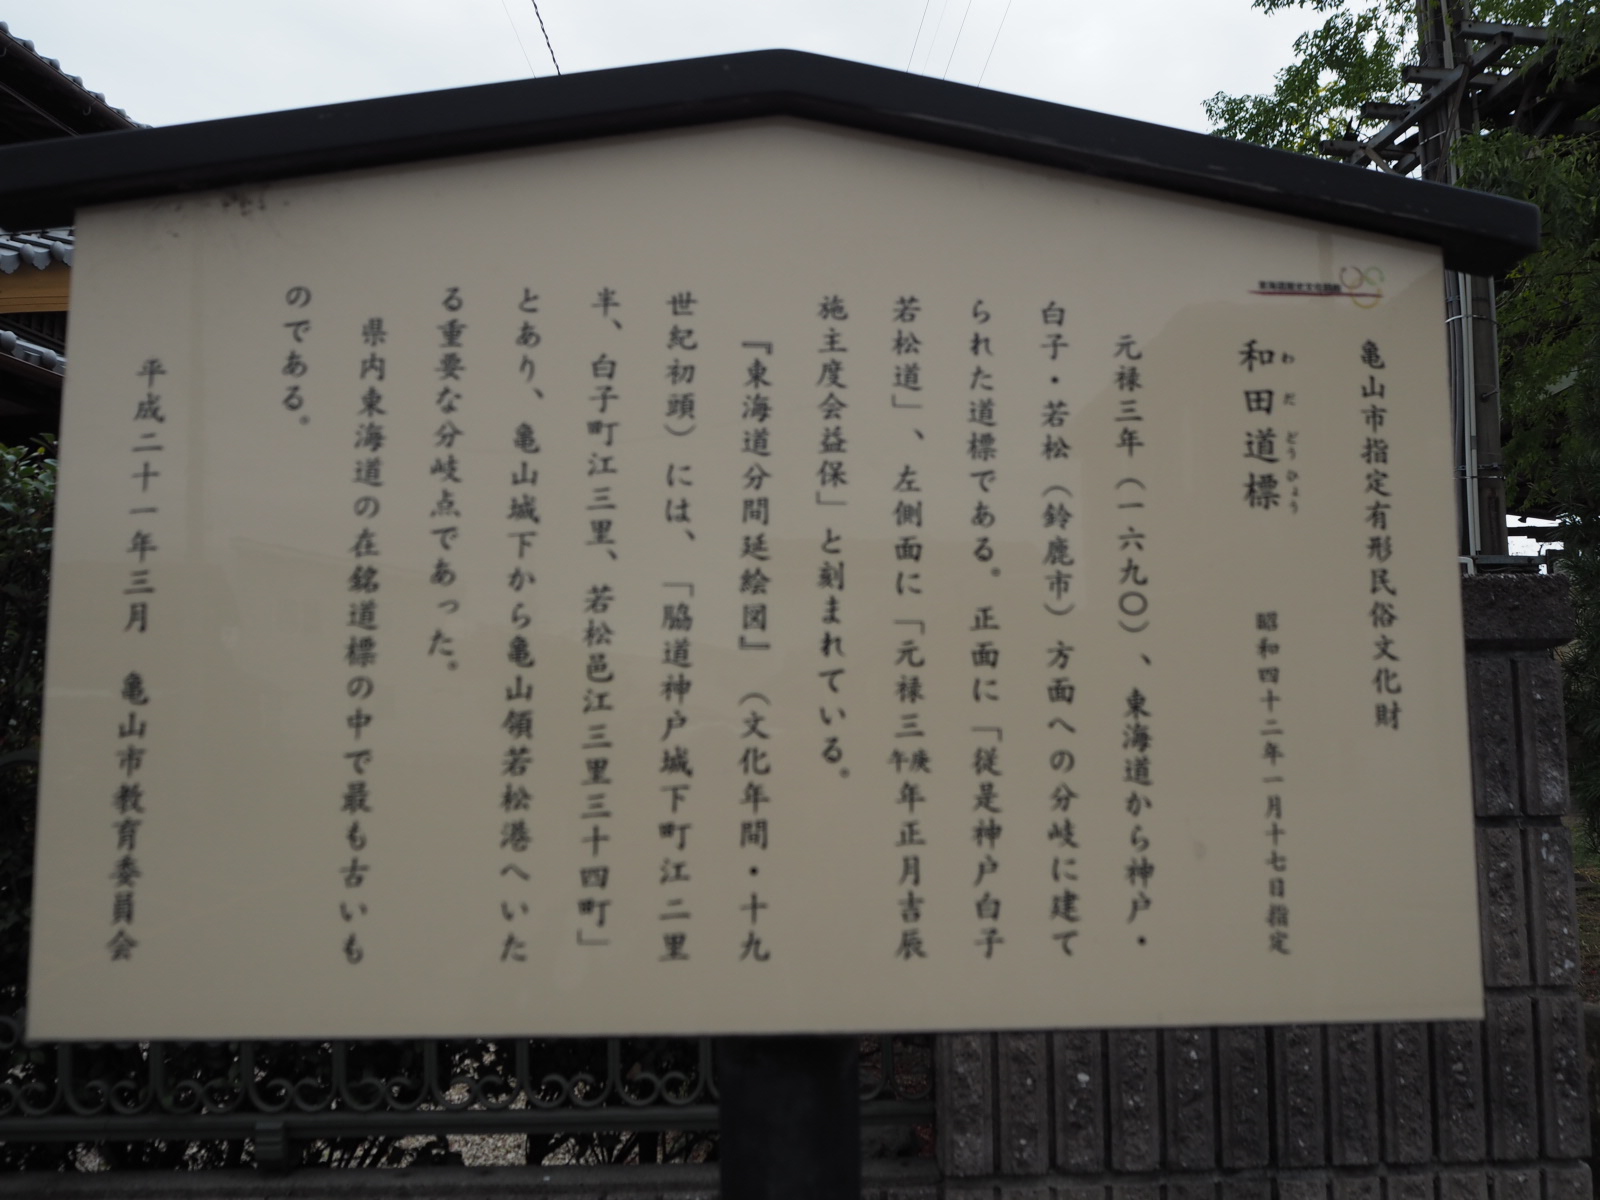 亀山市指定有形民俗文化財
和田道標　昭和四十二年一月十七日指定
わだどうひょう
元禄三年（一六九〇）、東海道から神戸・
白子・若松（鈴鹿市）方面への分岐に建て
られた道標である。正面に「従是神戸白子
若松道」、左側面に「元禄三庚午年正月吉辰
施主度会益保」と刻まれている。
『東海道分間延絵図』（文化年間・十九
世紀初頭）には、「脇道神戸城下町江二里
半、白子町江三里、若松邑江三里三十四町」
とあり、亀山城下から亀山領若松港へいた
る重要な分岐点であった。
県内東海道の在銘道標の中で最も古いも
のである。
平成二十一年三月　亀山市教育委員会